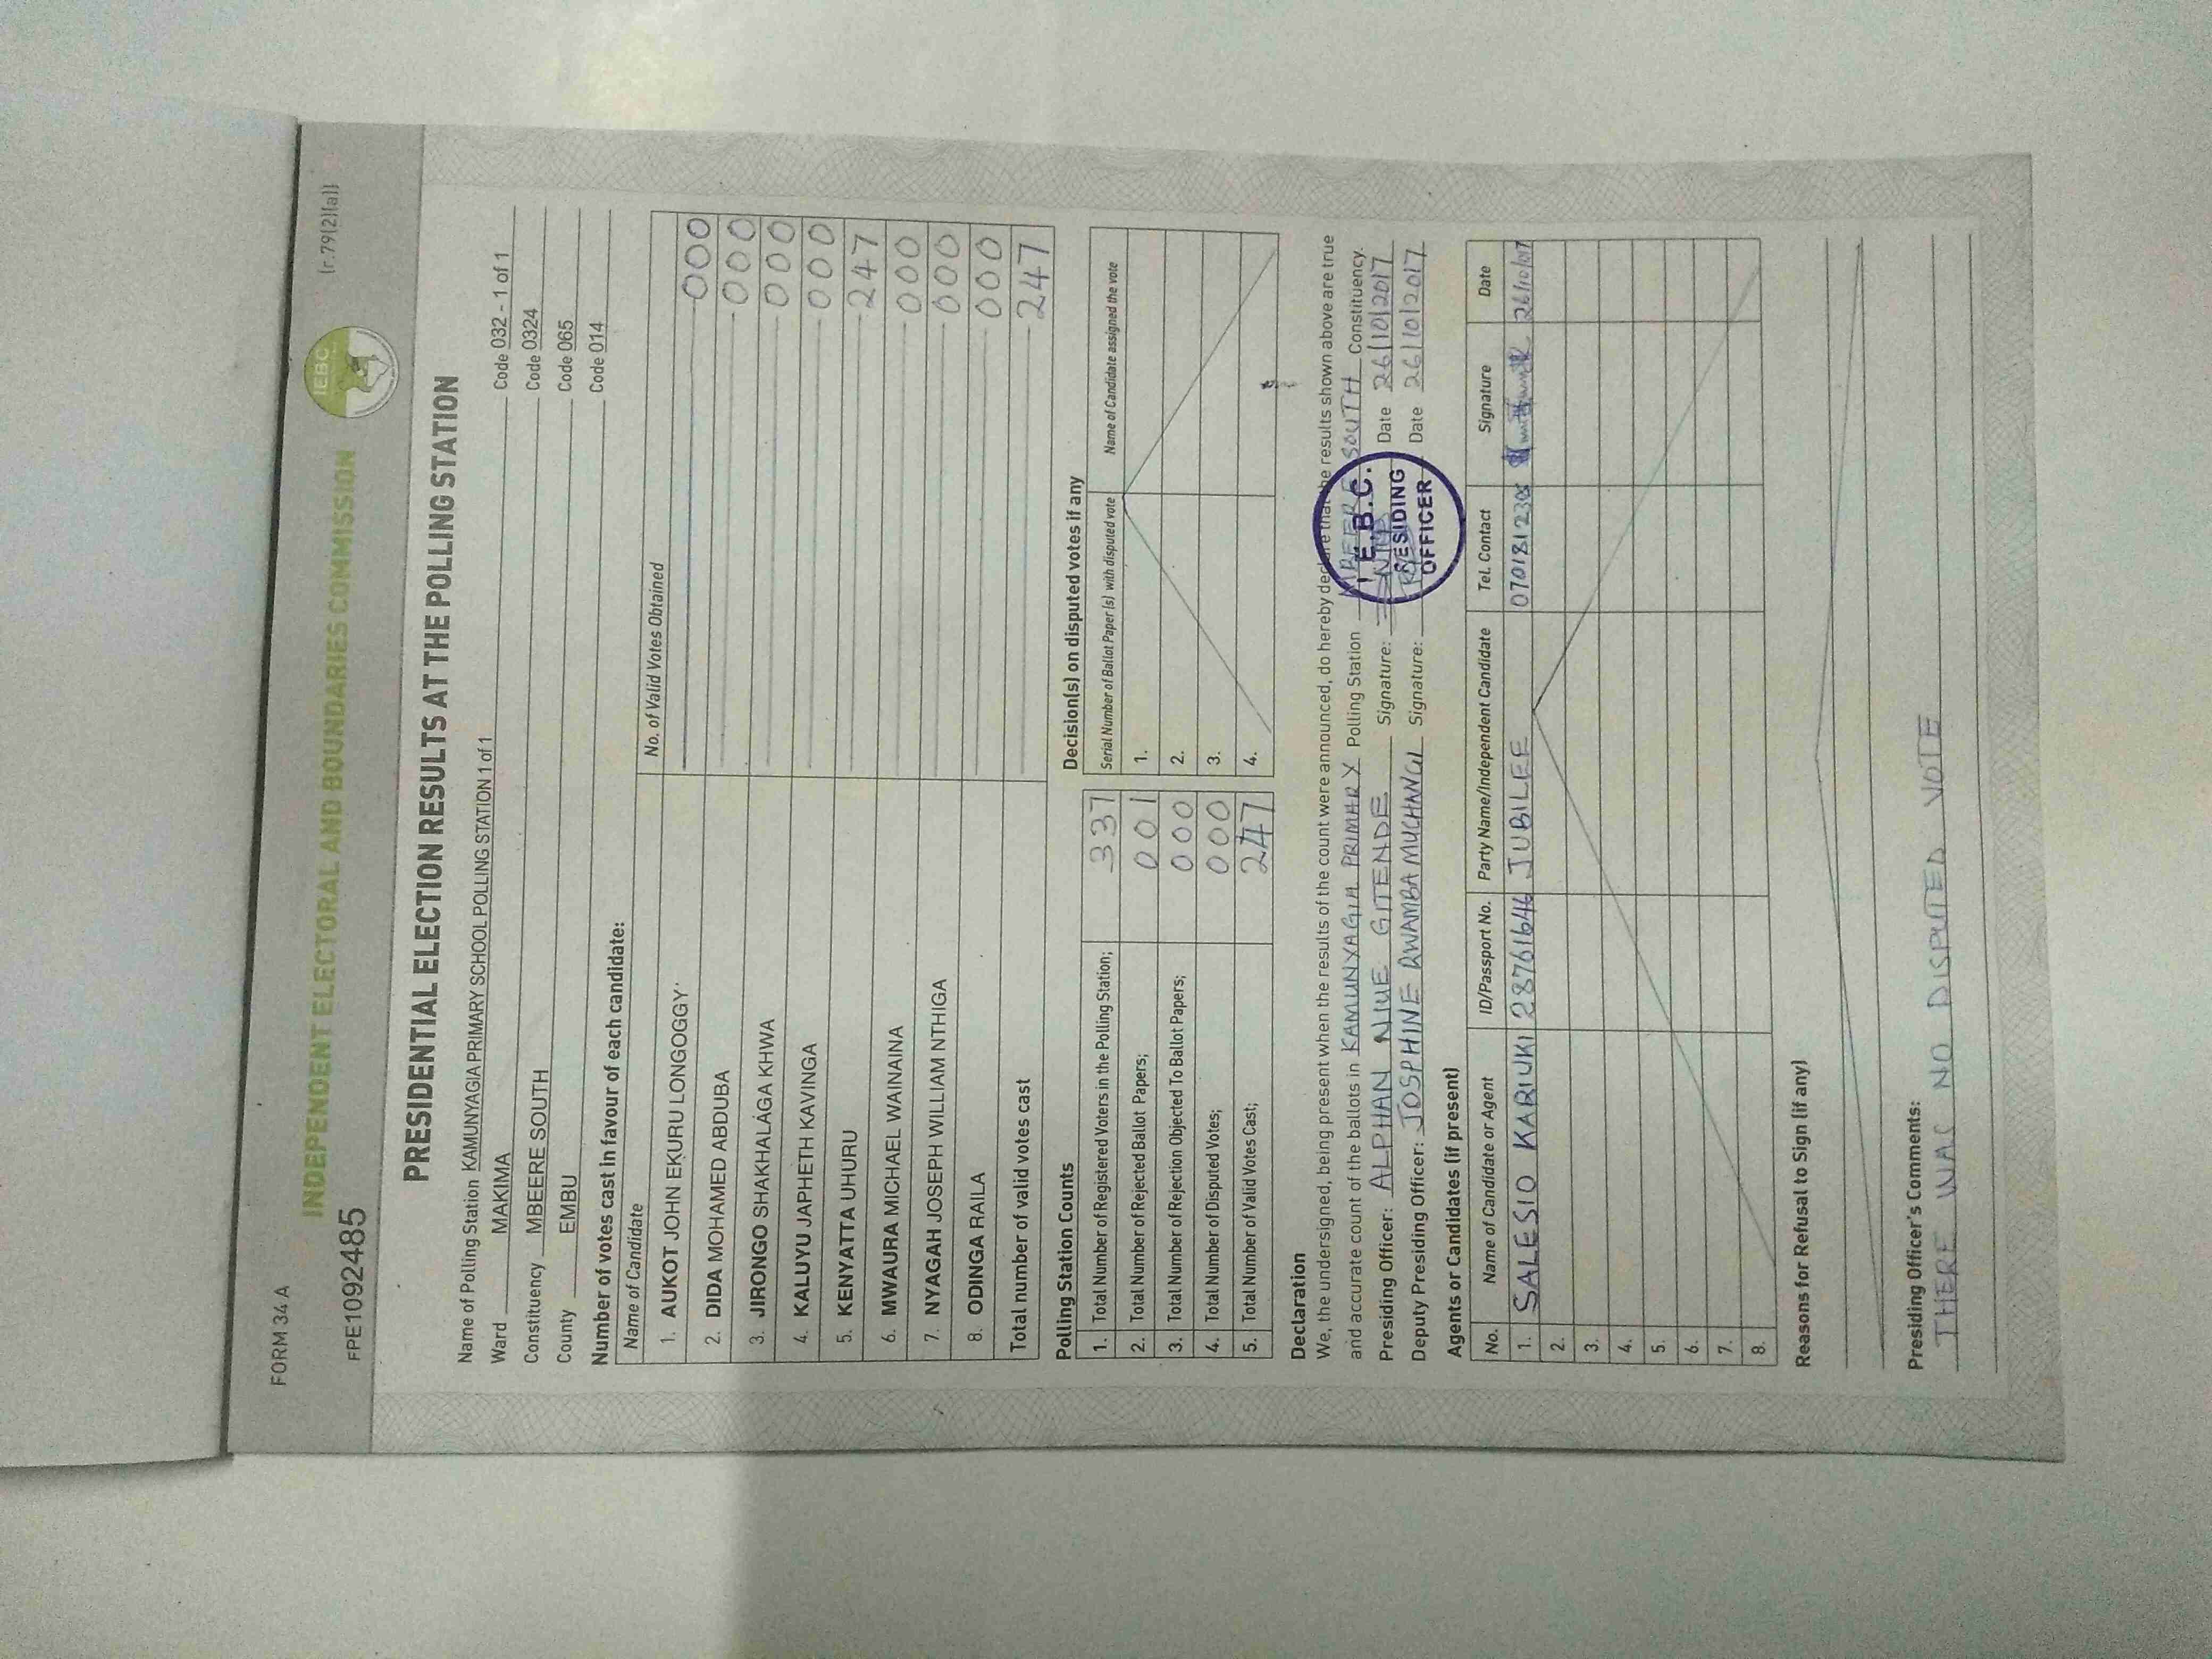 FORM 34 A
INDEPENDENT ELECTORAL AND BOUNDARIES COMMISSION
IEBC
(r.79(2)(a))
FPE1092485
PRESIDENTIAL ELECTION RESULTS AT THE POLLING STATION
Name of Polling Station KAMUNYAGIA PRIMARY SCHOOL POLLING STATION 1 of 1 Code 032 - 1 of 1
Ward MAKIMA Code 0324
Constituency MBEERE SOUTH Code 065
County EMBU Code 014
Number of votes cast in favour of each candidate:
Name of Candidate No. of Valid Votes Obtained
1. AUKOT JOHN EKURU LONGOGGY 000
2. DIDA MOHAMED ABDUBA 000
3. JIRONGO SHAKHALAGA KHWA 000
4. KALUYU JAPHETH KAVINGA 000
5. KENYATTA UHURU 247
6. MWAURA MICHAEL WAINAINA 000
7. NYAGAH JOSEPH WILLIAM NTHIGA 000
8. ODINGA RAILA 000
Total number of valid votes cast 247
Polling Station Counts
1. Total Number of Registered Voters in the Polling Station; 337
2. Total Number of Rejected Ballot Papers; 001
3. Total Number of Rejection Objected To Ballot Papers; 000
4. Total Number of Disputed Votes; 000
5. Total Number of Valid Votes Cast; 247
Decision(s) on disputed votes if any
Serial Number of Ballot Paper(s) with disputed vote Name of Candidate assigned the vote
1.
2.
3.
4.
Declaration
We, the undersigned, being present when the results of the count were announced, do hereby declare that the results shown above are true
and accurate count of the ballots in KAMUNYAGIA PRIMARY Polling Station MBEERE SOUTH Constituency.
Presiding Officer: ALPHAN NJUE GITENDE Signature: Date 26/10/2017
Deputy Presiding Officer: JOSPHINE RWAMBA MUCHANGI Signature: Date 26/10/2017
I.E.B.C.
PRESIDING
OFFICER
Agents or Candidates (if present)
No. Name of Candidate or Agent ID/Passport No. Party Name/Independent Candidate Tel. Contact Signature Date
1. SALESIO KARIUKI JUBILEE 26/10/017
2.
3.
4.
5.
6.
7.
8.
Reasons for Refusal to Sign (if any)
Presiding Officer's Comments:
THERE WAS NO DISPUTED VOTE